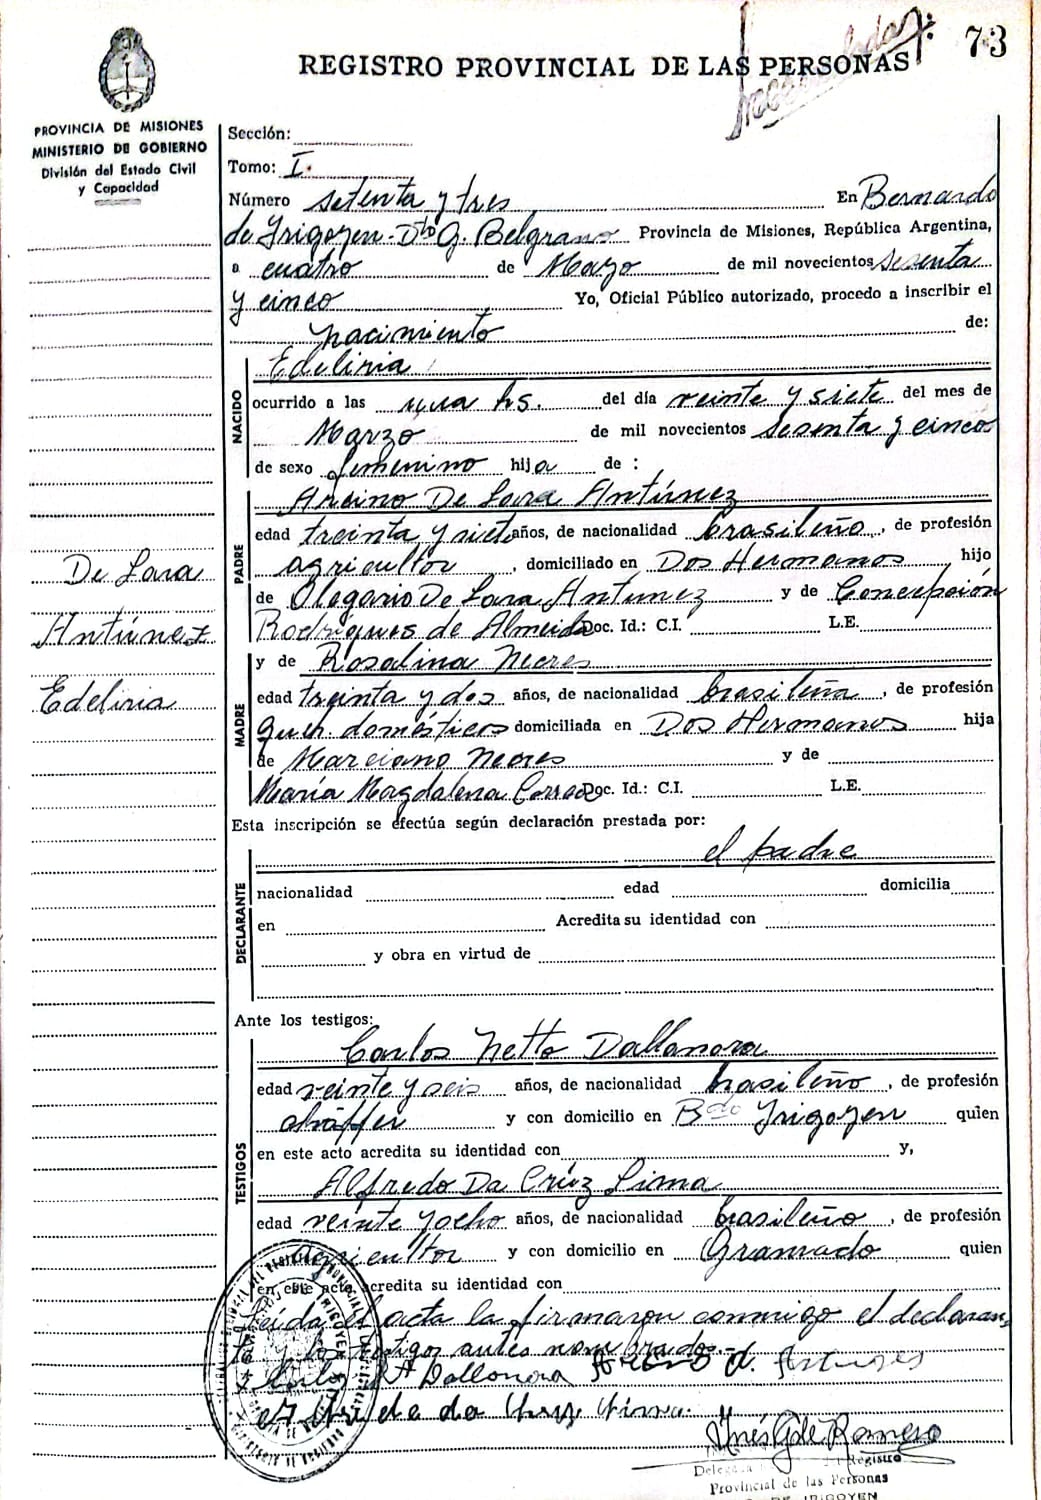 73
REGISTRO PROVINCIAL DE LAS PERSONAS
PROVINCIA DE MISIONES
MINISTERIO DE GOBIERNO
División del Estado Civil
y Capacidad
Sección:
Tomo: I.
Número setenta y tres En Bernardo
de Irigoyen - Dto G. Belgrano Provincia de Misiones, República Argentina,
a cuatro de Marzo de mil novecientos sesenta
y cinco Yo, Oficial Público autorizado, procedo a inscribir el
nacimiento de:
NACIDO
Edeliria
ocurrido a las una hs. del día veinte y siete del mes de
Marzo de mil novecientos sesenta y cinco
de sexo femenino hija de :
PADRE
De Lara Antúnez
edad treinta y siete años, de nacionalidad brasileño, de profesión
agricultor, domiciliado en Dos Hermanos hijo
de Olegario De Lara Antunez y de Concepción
Rodrigues de Almeida Doc. Id.: C.I. L.E.
De Lara
Antúnez
Edeliria
MADRE
y de Rosalina Neeres
edad treinta y dos años, de nacionalidad brasileña, de profesión
queh. domésticos domiciliada en Dos Hermanos hija
de Marciano Neeres y de
María Magdalena Correa Doc. Id.: C.I. L.E.
Esta inscripción se efectúa según declaración prestada por:
el padre
DECLARANTE
nacionalidad edad domicilia
en Acredita su identidad con
y obra en virtud de
Ante los testigos:
TESTIGOS
Carlos Netto Dallanora
edad veinte y seis años, de nacionalidad brasileño, de profesión
chóffer y con domicilio en Bdo Irigoyen quien
en este acto acredita su identidad con y,
Alfredo Da Crúz Lima
edad veinte y ocho años, de nacionalidad brasileño, de profesión
agricultor y con domicilio en Gramado quien
en este acto acredita su identidad con
Leída el acta la firmaron conmigo el declaran
te y los testigos antes nombrados.-
Dallanora d. Antunes
da Cruz Lima.
Inés G de Romero
Registro
Provincial de las Personas
DE IRIGOYEN